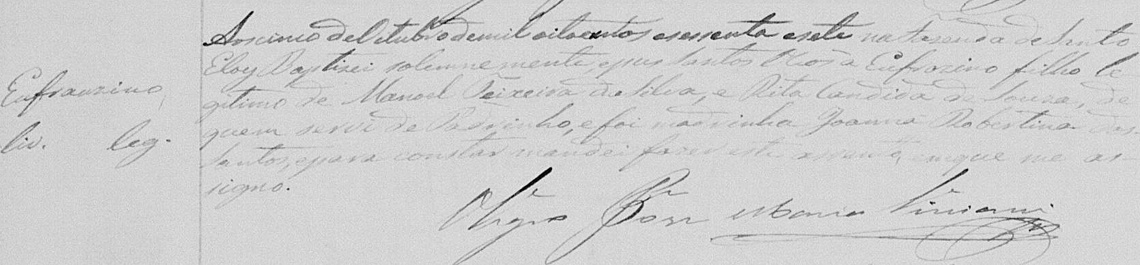 Aos cinco de Outubro de mil oitocentos e sessenta e sete na fasenda de Santo
Eloy Baptizei solemnemente, e pus Santos Oleos a Eufrazino filho le
Eufrauzino,
gitimo de Manoel Teixeira da Silva, e Rita Candida de Souza, de
quem servi de Padrinho, e foi madrinha Joanna Robertina dos
liv. leg.
Santos, e para constar mandei fazer este assento, em que me as-
signo.
O Vigro José Maria